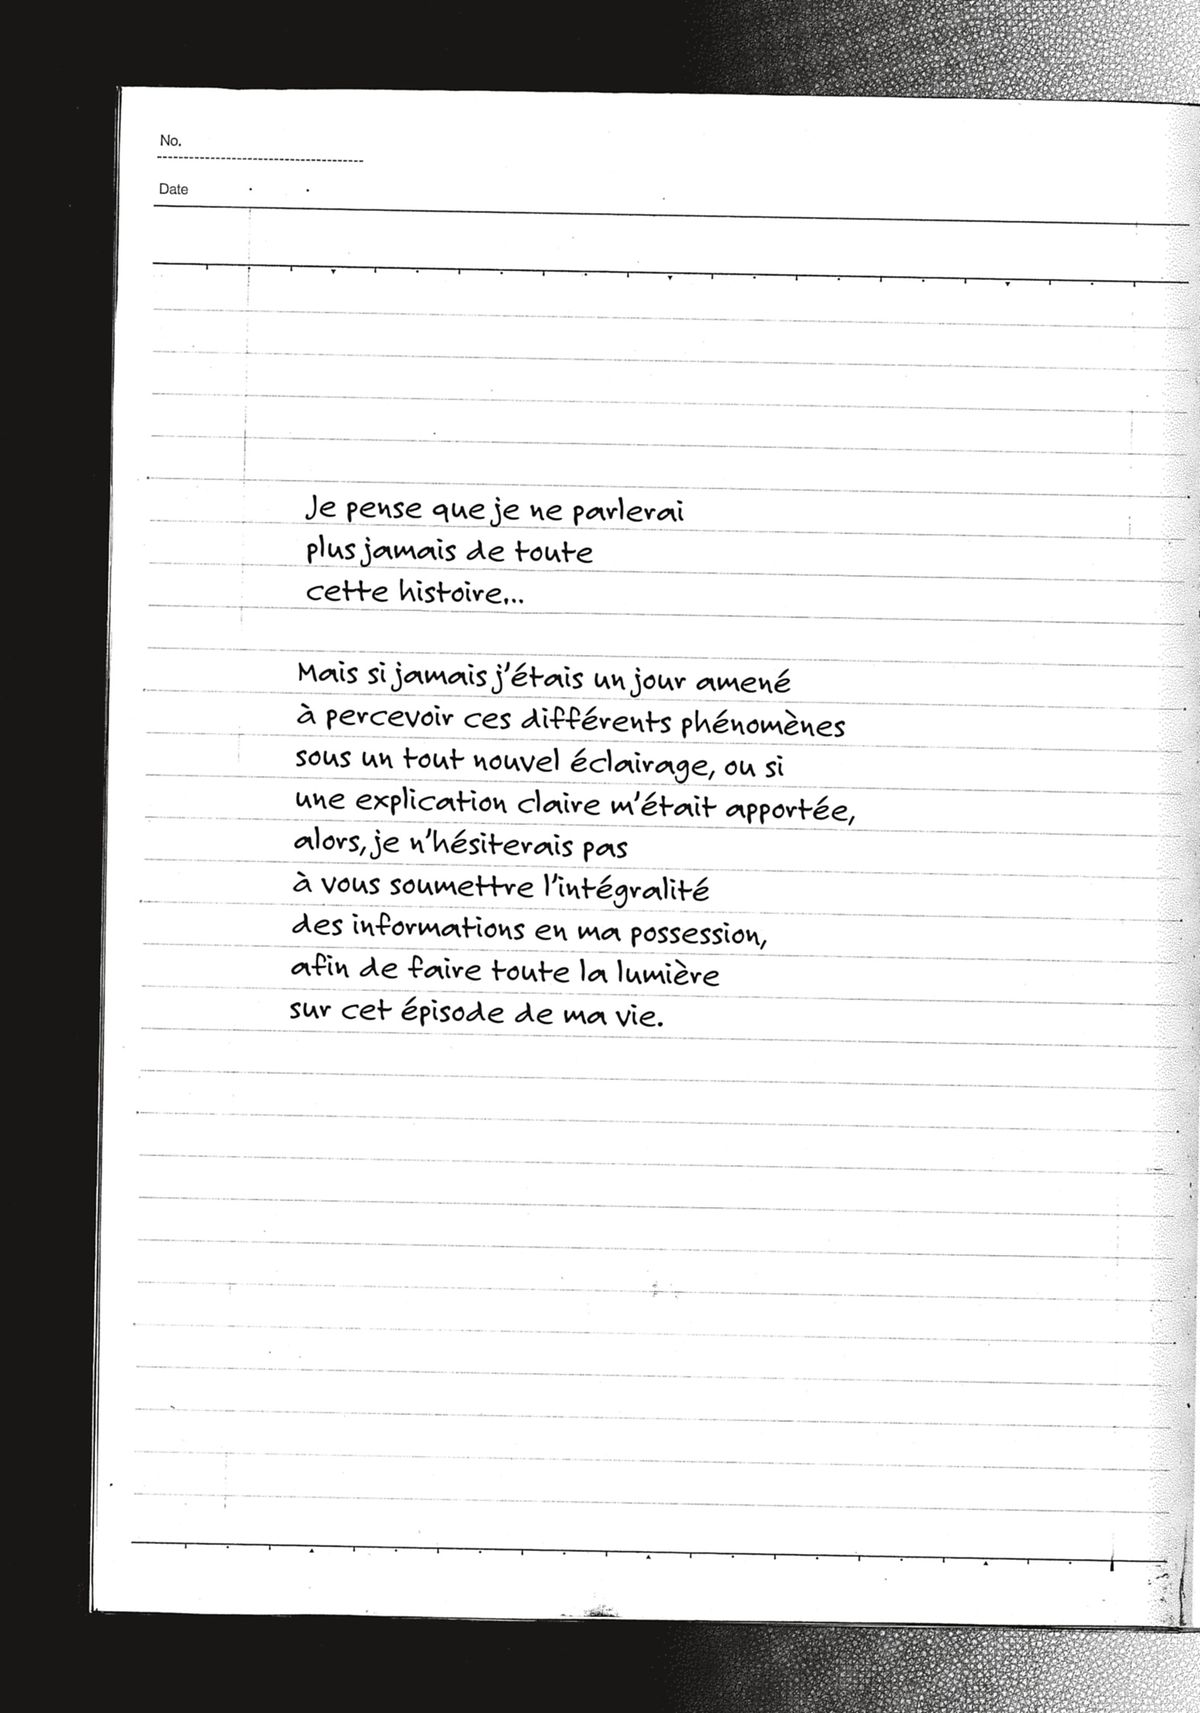 No.
Date
Je pense que je ne parlerai
plus jamais de toute
cette histoire...
Mais si jamais j'étais un jour amené
à percevoir ces différents phénomènes
sous un tout nouvel éclairage, ou si
une explication claire m'était apportée,
alors, je n'hésiterais pas
à vous soumettre l'intégralité
des informations en ma possession,
afin de faire toute la lumière
sur cet épisode de ma vie.